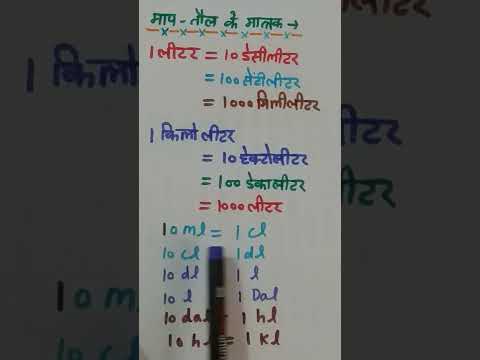 माप - तौल के मात्रक →
1 लीटर = 10 डेसीलीटर
= 100 सेंटीलीटर
= 1000 मिलीलीटर
1 किलोलीटर
= 10 हेक्टोलीटर
= 100 डेकालीटर
= 1000 लीटर
10 ml = 1 cl
10 cl 1 dl
10 dl 1 l
10 l 1 Dal
10 dal - 1 hl
10 hl = 1 kl